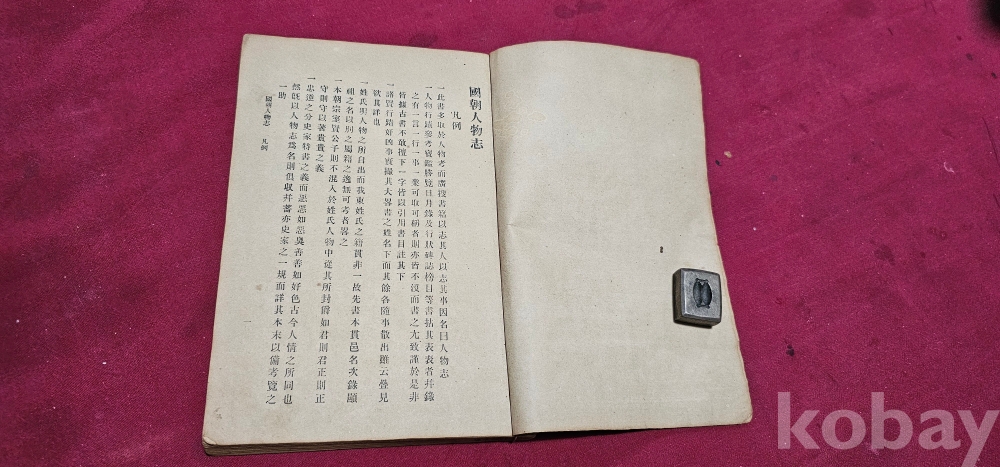 國朝人物志
凡例
一此書多取於人物考而廣搜書寫以志其人以志其事因名曰人物志
一人物行蹟參考寶鑑勝覽日月錄及行狀碑誌榜目等書拈其表表者幷錄
之有一言一行一事一業可取可稱者則亦皆不沒而書之尤致謹於是非
皆據古書不敢擅下一字皆以引用書目註其下
一諸賢行蹟好凶事實撮其大畧書之姓名下而其餘各隨事散出雖云疊見
欲其詳也
一姓氏明人物之所自出而我東姓氏之籍貫非一故先書本貫邑名次錄顯
祖之名以別之屬籍之逸無可考者畧之
一本朝宗室賢公子則不混入於姓氏人物中從其所封爵如君則君正則正
守則守以著貴貴之義
一忠逆之分史家特書之義而惡惡如惡臭善善如好色古今人情之所同也
然旣以人物志爲名則俱収幷蓄亦史家之一規而詳其本末以備考覽之
一助
國朝人物志 凡例
一
kobay